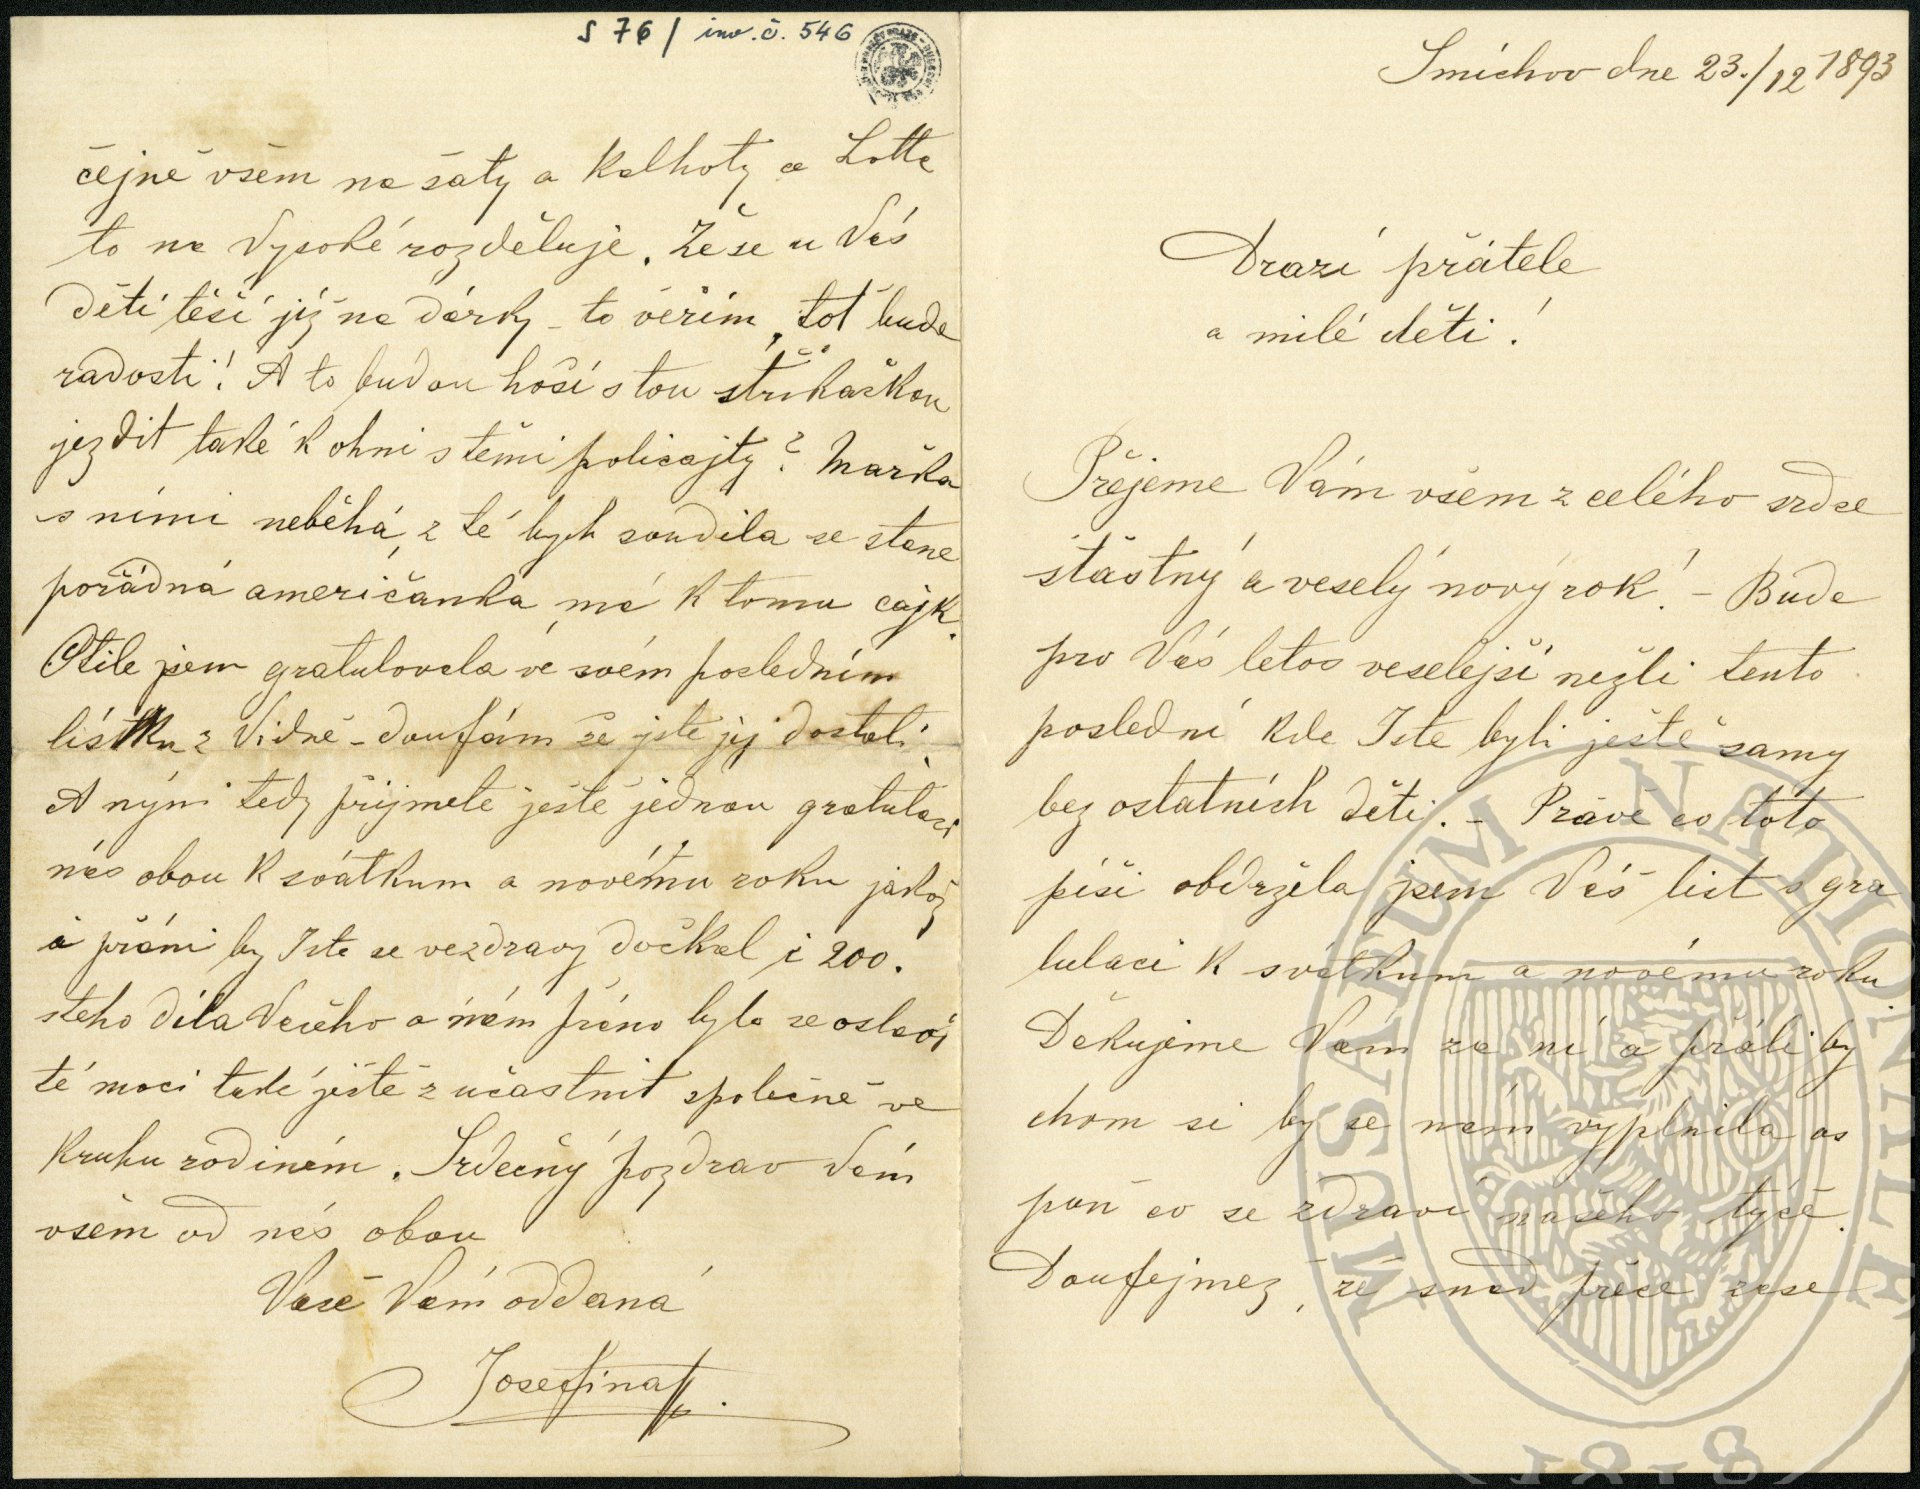 Smíchov dne 23./12 1893
Drazí přátele
a milé děti!
Přejeme Vám všem z celého srdce
šťastný a veselý nový rok! – Bude
pro Vás letos veselejší nežli tento
poslední kde Jste byli ještě samy
bez ostatních dětí. – Právě co toto
píši obdržela jsem Váš list s gra
tulací k svátkum a novému roku
Děkujeme Vám za ní a přáli by
chom si by se nám vyplnila as
poň co se zdraví našeho týče.
Doufejmež, že snad přece zase
S 76 / inv. č. 546
čejně všem na šaty a Kalhoty a Lotta
to na Vysoké rozděluje. Že se u Vás
děti těší již na dárky – to věřím, toť bude
radosti! A to budou hoši s tou stříkačkou
jezdit také k ohni s těmi policajty? Mařka
s nimi neběhá, z té bych soudila se stane
pořádná američanka, má k tomu cajk.
Otile jsem gratulovala ve svém posledním
lístku z Vídně – doufám že jste jej dostali.
A nýní tedy přijmete ještě jednou gratulaci
nás obou k svátkum a novému roku jakož
i přání by Jste se ve zdraví dočkal i 200.
stého díla Vašeho a nám přáno bylo se oslavy
té moci také ještě zučastnit společně ve
Kruhu rodiném. Srdečný pozdrav Vám
všem od nás obou
Vaše Vám oddaná
Josefina
MUSAEUM NATIONALE
1818